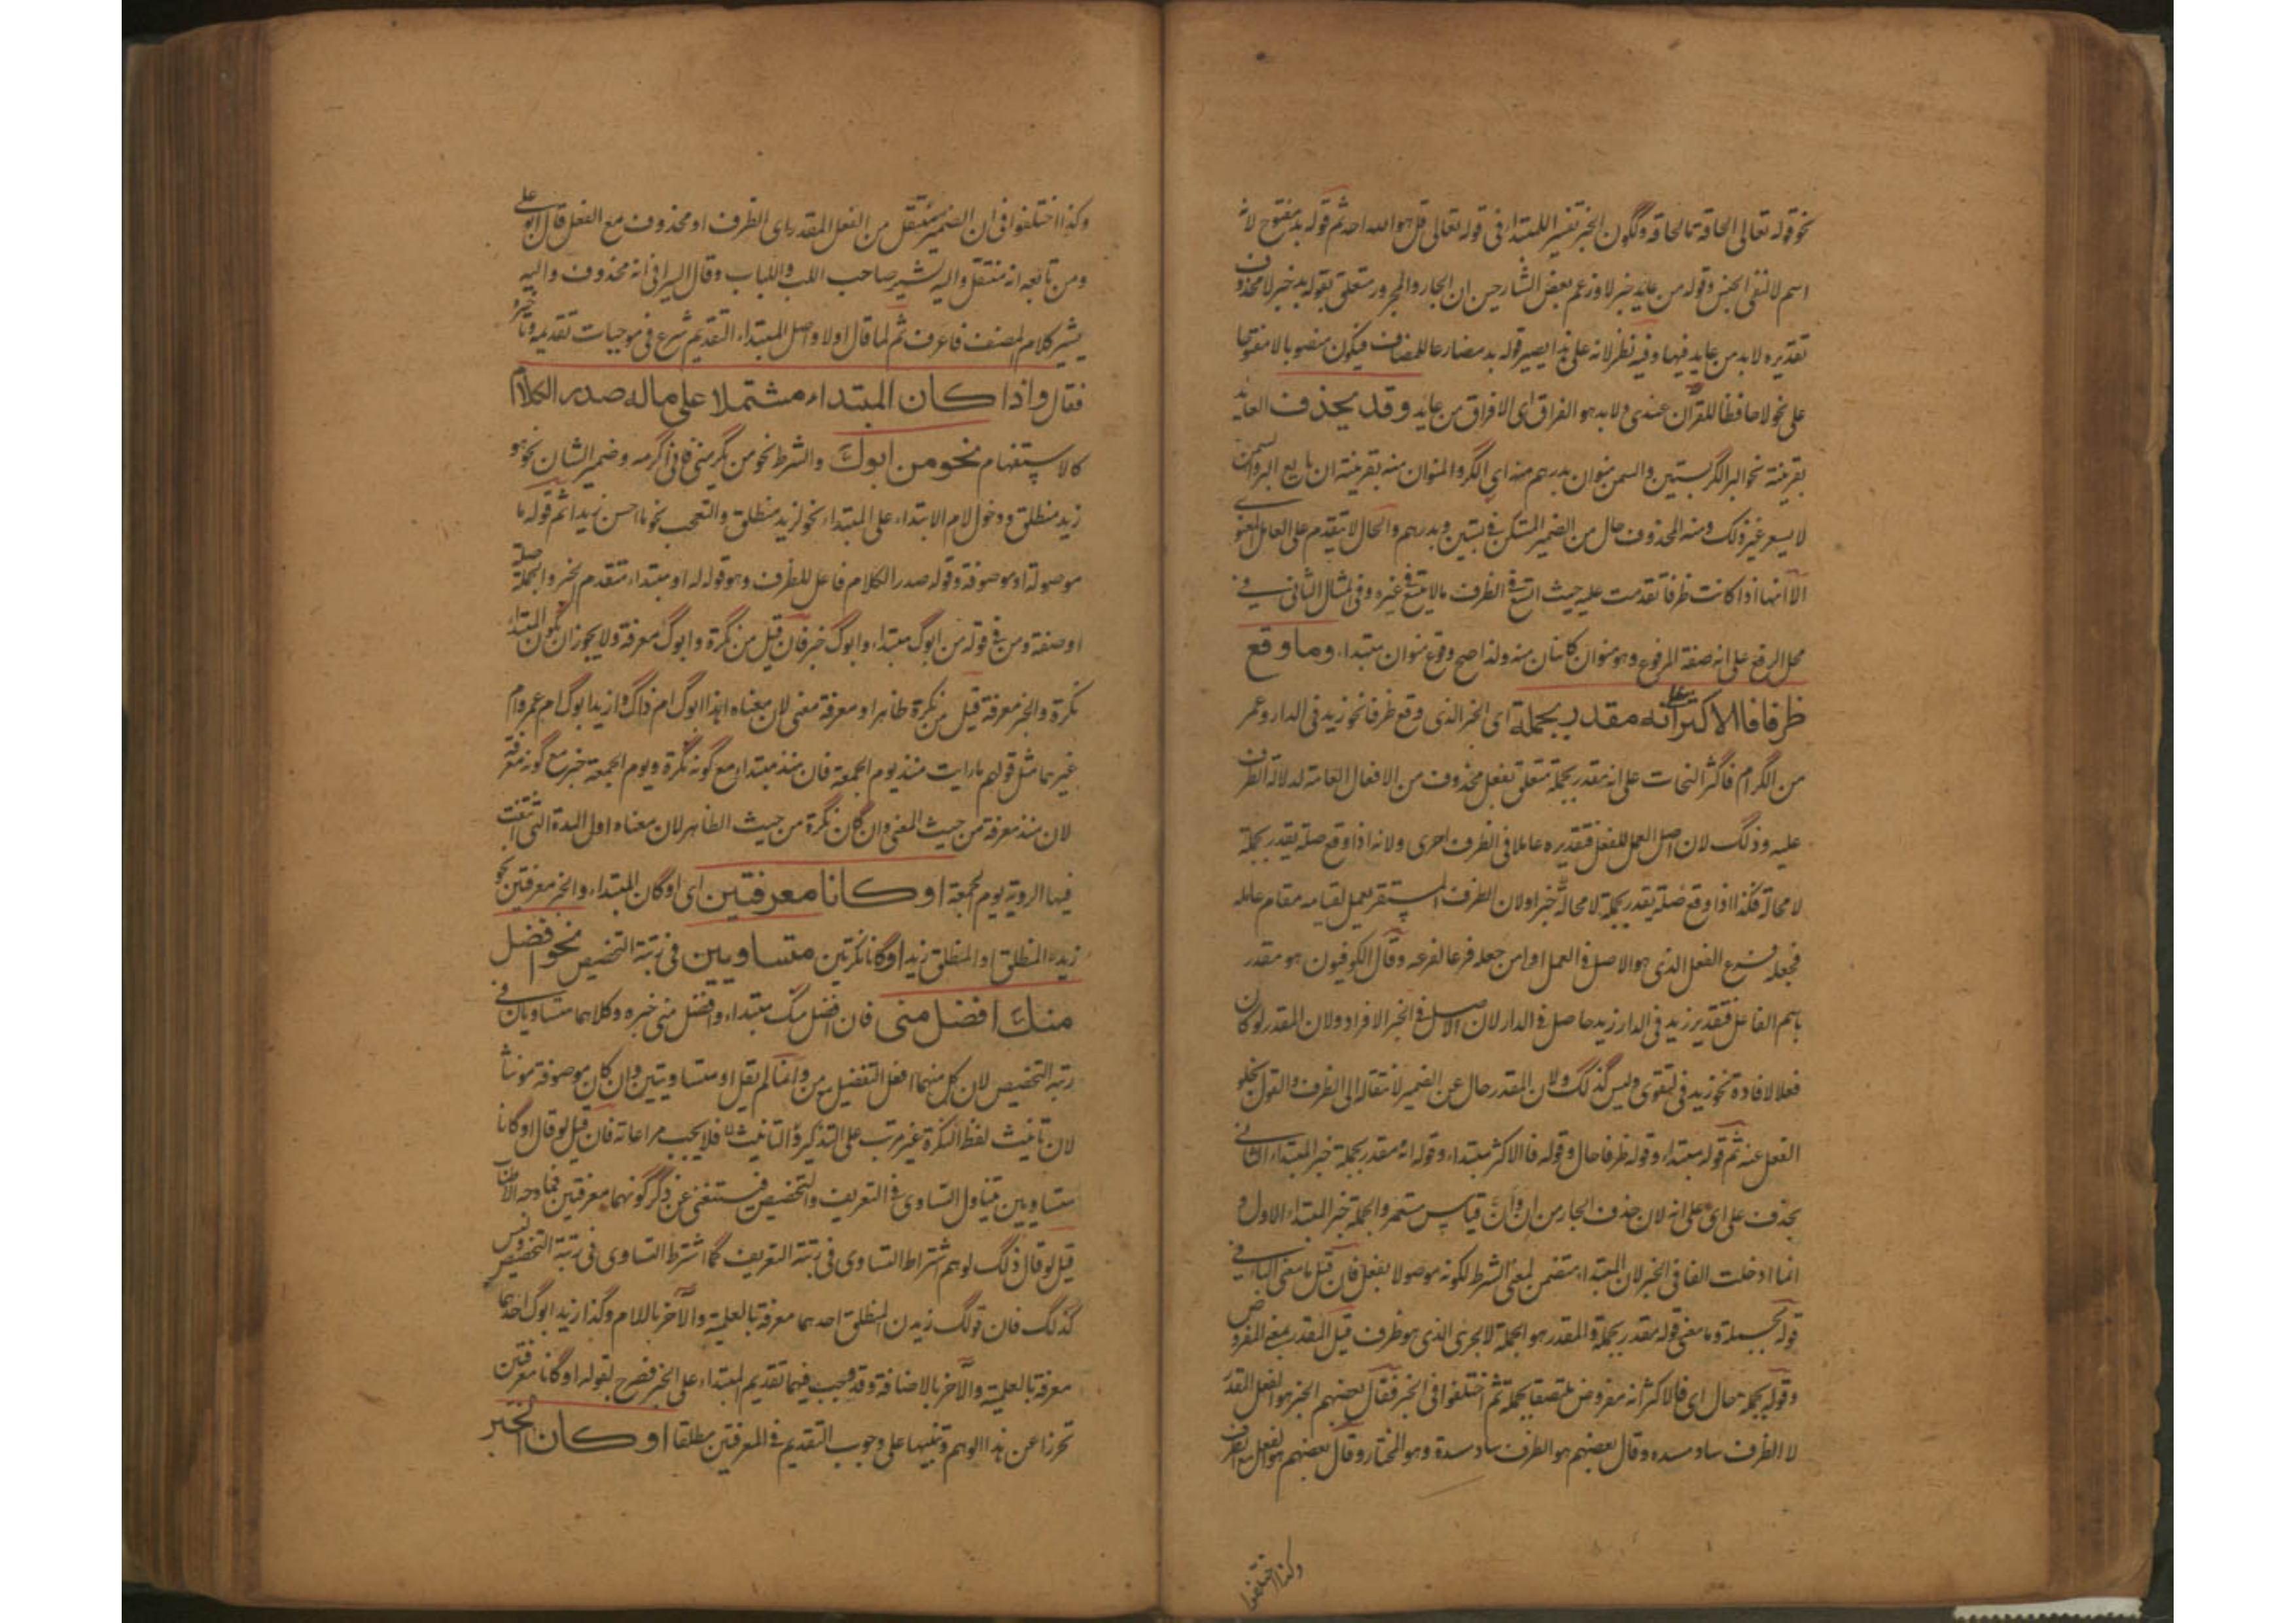 نحو قوله تعالى الحاقة ما الحاقة ولكون الخبر تفسير المبتداء في قوله تعالى قل هو الله احد ثم قوله بد مفتوح لانه
اسم لا لنفى الجنس وقوله من عايد خبر لا وزعم بعض الشارحين ان الجار والمجرور متعلق بقوله بد خبر لا محذوف
تقديره لا بد من عايد فيها وفيه نظر لانه على هذا يصير قوله بد مضارعا للمضاف فيكون منصوبا لا مفتوحا
على نحو لا حافظا للقرآن عندى ولا بد هو الفراق اى لا فراق من عايد وقد يحذف العايد
بقرينة نحو البر الكر بستين والسمن منوان بدرهم منه اى الكر والمنوان منه بقرينة ان بايع البر والسمن
لا يسعر غير ذلك ومنه المحذوف حال من الضمير المستكن في بستين وبدرهم والحال لا يتقدم على العامل المعنوى
الا انها اذا كانت ظرفا تقدمت عليه حيث اتسع في الظرف ما لا يتسع في غيره وفى المثال الثانى في
محل الرفع على انه صفة المرفوع وهو منوان كائنان منه ولذا صح وقوع منوان مبتداء وما وقع
ظرفا فالاكثر على انه مقدر بجملة اى الخبر الذى وقع ظرفا نحو زيد في الدار وعمر
من الكرام فاكثر النحات على انه مقدر بجملة متعلق بفعل محذوف من الافعال العامة لدلالة الظرف
عليه وذلك لان اصل العمل للفعل فتقديره عاملا في الظرف احرى ولانه اذا وقع صلة يقدر بجملة
لا محالة فكذا اذا وقع صلة يقدر بجملة لا محالة خبرا ولان الظرف المستقر يعمل لقيامه مقام عامله
فجعله فرع الفعل الذى هو الاصل في العمل اولى من جعله فرعا لفرعه وقال الكوفيون هو مقدر
باسم الفاعل فتقدير زيد في الدار زيد حاصل في الدار لان الاصل في الخبر الافراد ولان المقدر لو كان
فعلا لافادة نحو زيد في التقوى وليس كذلك ولان المقدر حال عن الضمير لانتقاله الى الظرف والقول بخلو
الفعل عنه ثم قوله مبتداء وقوله ظرفا حال وقوله فالاكثر مبتداء وقوله انه مقدر بجملة خبر المبتداء الثانى
بحذف على اى على انه لان حذف الجار من ان وانّ قياس مستمر والجملة خبر المبتداء الاول و
انما ادخلت الفا في الخبر لان المبتداء متضمن لمعنى الشرط لكونه موصولا بفعل فان قيل ما معنى الباء في
قوله بجملة وما معنى قوله مقدر بجملة والمقدر هو الجملة لا الجرى الذى هو ظرف قيل المقدر بمعنى المفروض
وقوله بجملة حال اى فالاكثر انه مفروض ملتصقا بجملة ثم اختلفوا في الخبر فقال بعضهم الخبر هو الفعل المقدر
لا الظرف ساد مسده وقال بعضهم هو الظرف ساد مسدة وهو المختار وقال بعضهم هو الفعل مع الظرف
وكذا اختلفوا
وكذا اختلفوا في ان الضمير منتقل من الفعل المقدر الى الظرف او محذوف مع الفعل قال ابو على
ومن تابعه انه منتقل واليه يشير صاحب اللب واللباب وقال السيرافى انه محذوف واليه
يشير كلام المصنف فاعرف ثم لما قال اولا واصل المبتداء التقديم شرع في موجبات تقديمه وتاخيره
فقال واذا كان المبتداء مشتملا على ماله صدر الكلام
كالاستفهام نحو من ابوك والشرط نحو من يكرمنى فانى اكرمه وضمير الشان نحو هو
زيد منطلق ودخول لام الابتداء على المبتداء نحو لزيد منطلق والتعجب نحو ما احسن زيدا ثم قوله ما
موصولة او موصوفة وقوله صدر الكلام فاعل للظرف وهو قوله له او مبتداء متقدم الخبر والجملة صلة
او صفة ومن في قوله من ابوك مبتداء وابوك خبر فان قيل من نكرة وابوك معرفة ولا يجوز ان يكون المبتداء
نكرة والخبر معرفة قيل من نكرة ظاهرا ومعرفة معنى لان معناه اهذا ابوك ام ذاك وازيد ابوك ام عمرو ام
غيرهما مثل قولهم ما رايت منذ يوم الجمعة فان منذ مبتداء مع كونه نكرة ويوم الجمعة خبر مع كونه معرفة
لان منذ معرفة من حيث المعنى وان كان نكرة من حيث الظاهر لان معناه اول المدة التى انتفت
فيها الروية يوم الجمعة او كانا معرفتين اى او كان المبتداء والخبر معرفتين نحو
زيد المنطلق او المنطلق زيد او كانا نكرتين متساويين في رتبة التخصيص نحو افضل
منك افضل منى فان افضل منك مبتداء وافضل منى خبره وكلاهما متساويان في
رتبة التخصيص لان كل منهما افعل التفضيل بمن وانما لم يقل او متساويتين وان كان موصوفه مونثا
لان تانيث لفظ النكرة غير مرتب على التذكير والتانيث فلا يجب مراعاته فان قيل لو قال او كانا
متساويين يتناول التساوى في التعريف والتخصيص فيستغنى عن ذكر كونهما معرفتين فما وجه الاطناب
قيل لو قال ذلك لوهم اشتراط التساوى في رتبة التعريف كما اشترط التساوى في رتبة التخصيص وليس
كذلك فان قولك زيدن المنطلق احدهما معرفة بالعلمية والآخر باللام وكذا زيد ابوك احدهما
معرفة بالعلمية والآخر بالاضافة وقد يجب فيهما تقديم المبتداء على الخبر فصرح بقوله او كانا معرفتين
تحرزا عن هذا الوهم وتنبيها على وجوب التقديم في المعرفتين مطلقا او كان الخبر